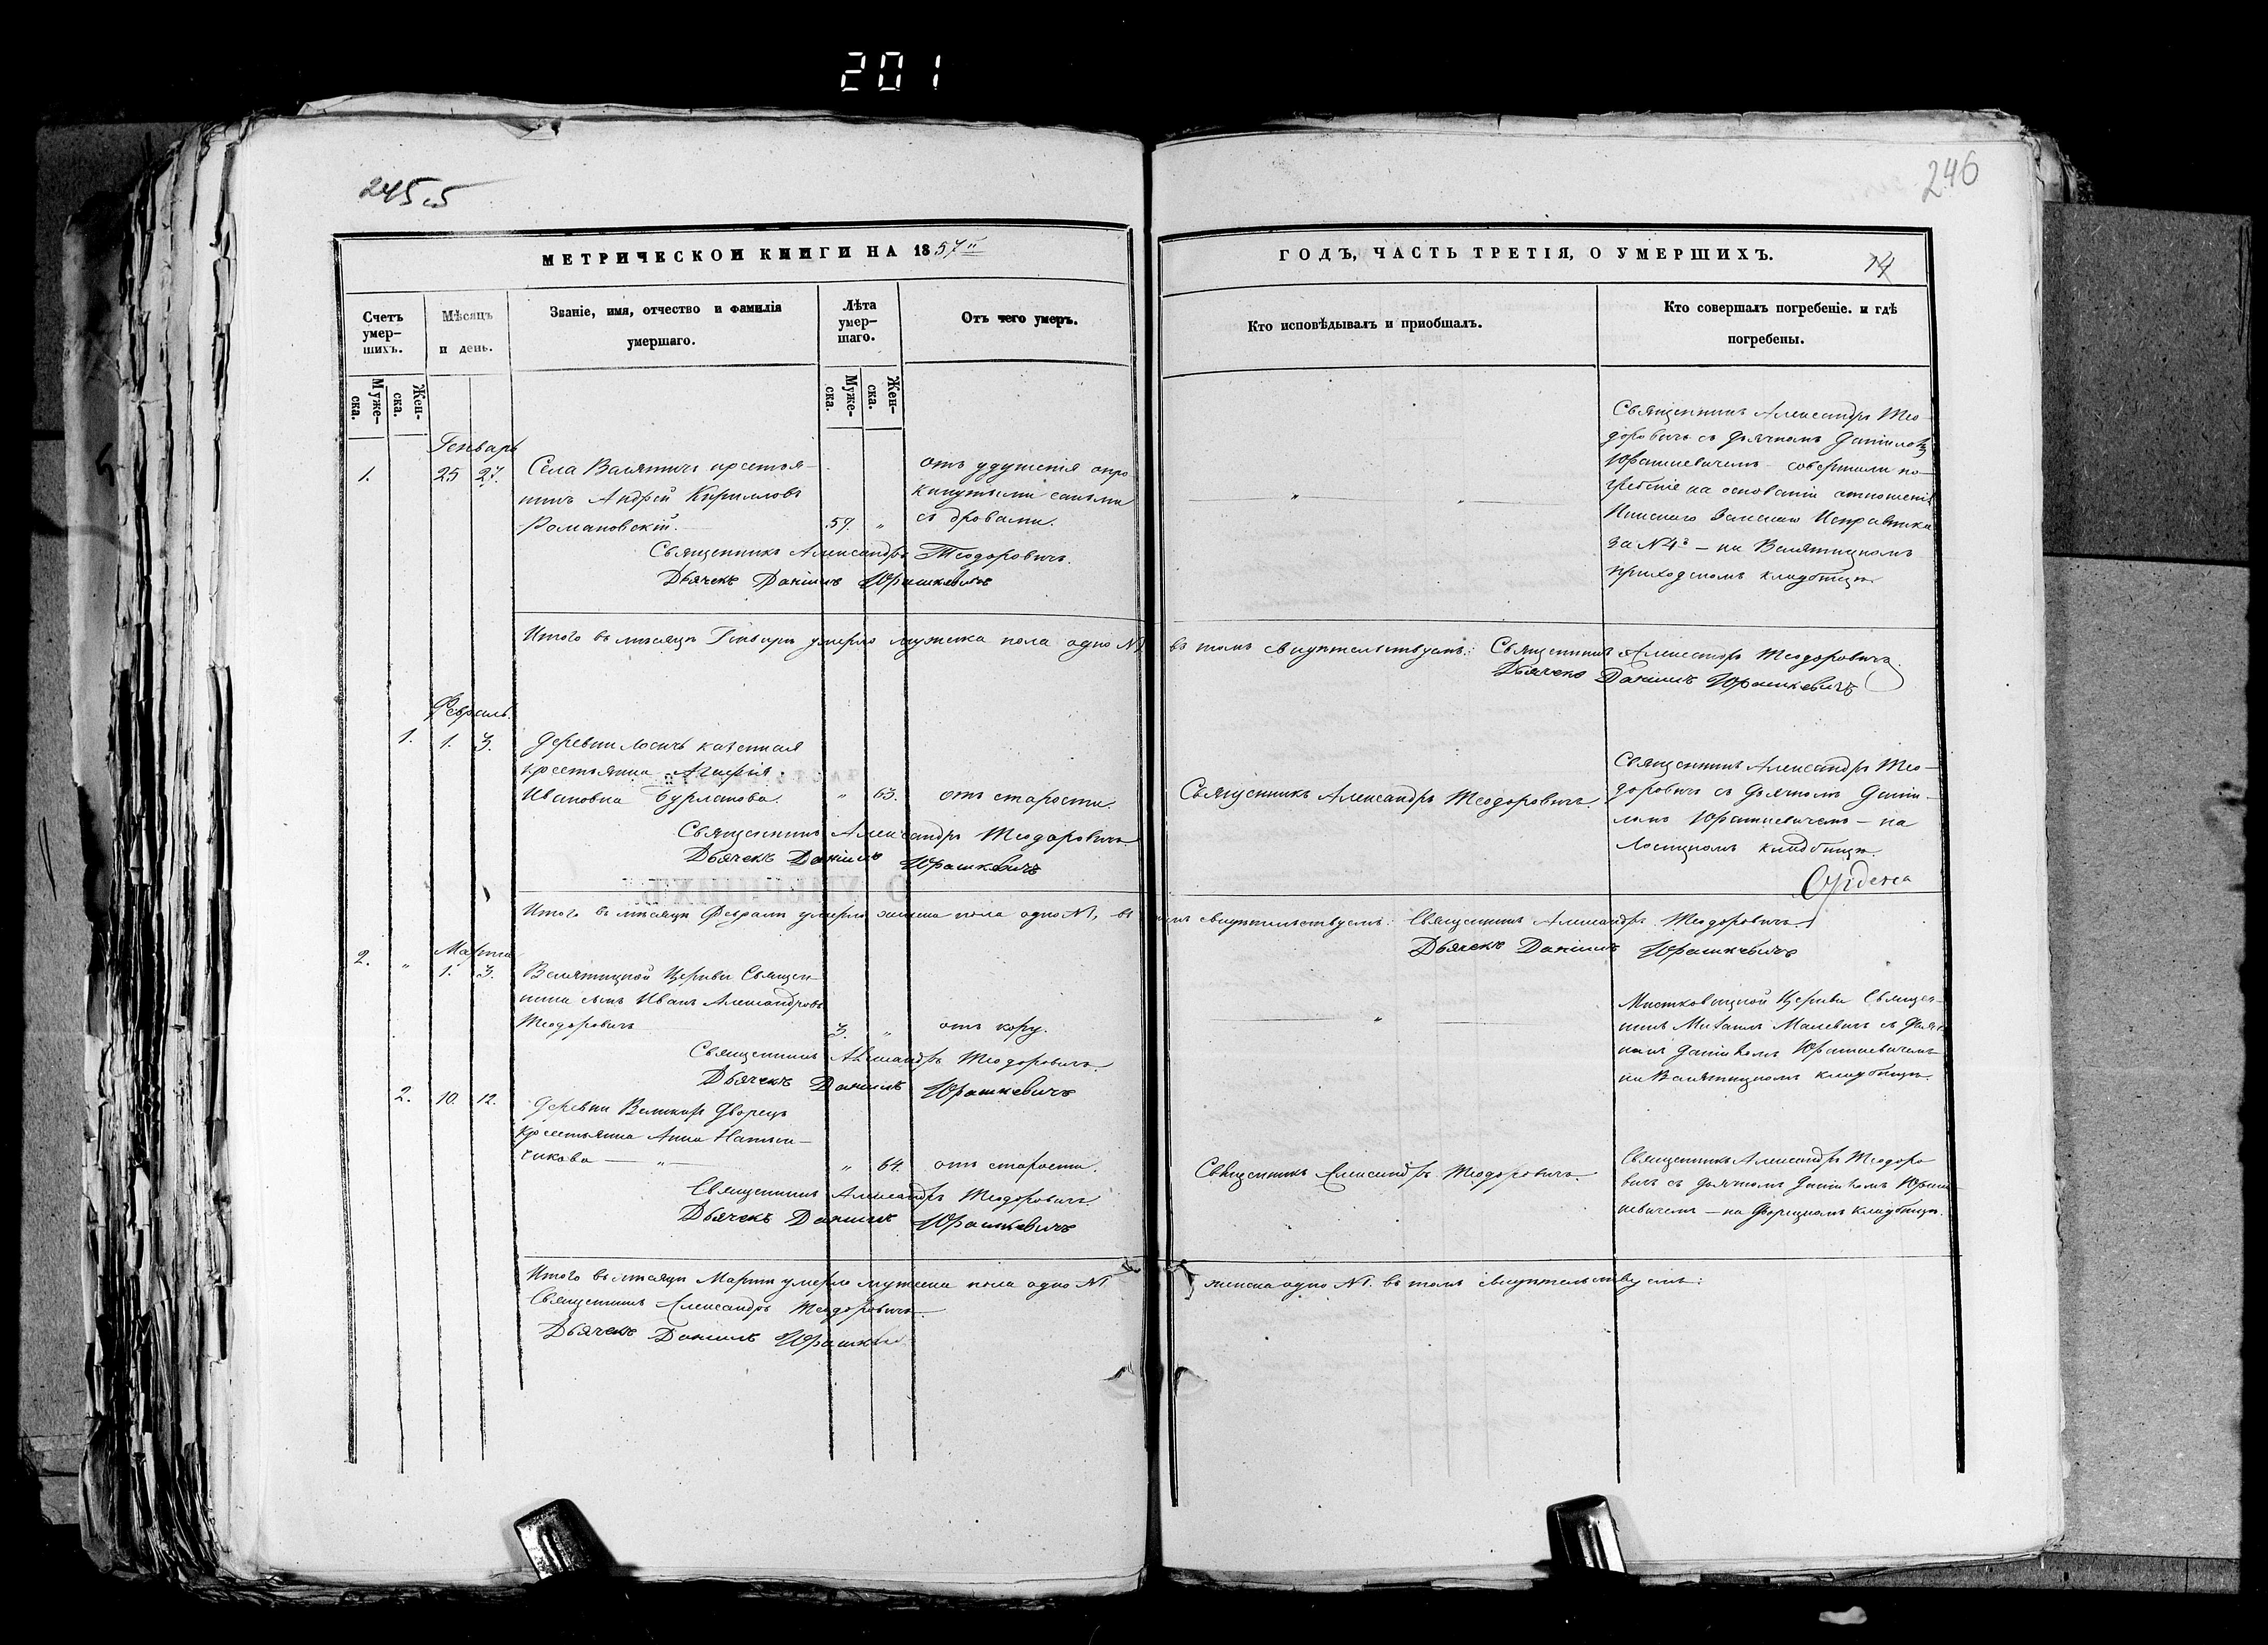 201
245.5
246
МЕТРИЧЕСКОЙ КНИГИ НА 1857й
ГОДЪ, ЧАСТЬ ТРЕТІЯ, О УМЕРШИХЪ.
14
Счетъ умер-шихъ.
Мѣсяцъ и день.
Званіе, имя, отчество и фамилія умершаго.
Лѣта умер-шаго.
Отъ чего умеръ.
Кто исповѣдывалъ и пріобщалъ.
Кто совершалъ погребеніе. и гдѣ погребены.
Муже-ска.
Жен-ска.
Муже-ска.
Жен-ска.
Генварь
1. 25 27.
Села Валятичь крестья-
нинъ Андрей Кирилловъ
Романовскій.
57. "
отъ удушенія опро
кинутыми саньми
съ дровами.
" "
Священникъ Александръ Тео-
доровичъ съ дьячкомъ Даніиломъ
Юрашкевичемъ совершили по-
гребеніе на основаніи отношенія
Пинскаго Земскаго Исправника
за №
на Валятицкомъ
приходскомъ кладбищѣ
Священникъ Александръ Теодоровичъ.
Дьячекъ Даніилъ Юрашкевичъ
Итого въ мѣсяцѣ Генварѣ умерло мужеска пола одно №1. въ томъ свидѣтельствуемъ: Священникъ Александръ Теодоровичъ.
Дьячекъ Даніилъ Юрашкевичъ
Февраль.
1. 1. 3.
Деревни Лосичь казенная
крестьянка Агафія
Ивановна Бурлакова.
" 63.
отъ старости.
Священникъ Александръ Теодоровичъ.
Священникъ Александръ Тео-
доровичъ съ дьячкомъ Даніи-
ломъ Юрашкевичемъ – на
Лосицкомъ кладбищѣ.
Священникъ Александръ Теодоровичъ
Дьячекъ Даніилъ Юрашкевичъ
Итого въ мѣсяцѣ Февралѣ умерло женска пола одно №1, въ томъ свидѣтельствуемъ: Священникъ Александръ Теодоровичъ.
Дьячекъ Даніилъ Юрашкевичъ
Мартъ
2. " 1. 3.
Валятицкой Церкви Священ-
ника сынъ Иванъ Александровъ
Теодоровичъ
3. "
отъ кору.
"
Церкви Священ-
никъ Михаилъ Малевичъ съ дьяч-
комъ Даніиломъ Юрашкевичемъ
на Валятицкомъ кладбищѣ.
Священникъ Александръ Теодоровичъ.
Дьячекъ Даніилъ Юрашкевичъ
2. 10. 12.
Деревни Дворецъ
крестьянка Анна
" 64.
отъ старости.
Священникъ Александръ Теодоровичъ.
Священникъ Александръ Теодоро
вичъ съ дьячкомъ Даніиломъ Юраш
кевичемъ – на Дворецкомъ кладбищѣ.
Священникъ Александръ Теодоровичъ
Дьячекъ Даніилъ Юрашкевичъ
Итого въ мѣсяцѣ Мартѣ умерло мужеска пола одно №1 женска одно №1. въ томъ свидѣтельствуемъ:
Священникъ Александръ Теодоровичъ
Дьячекъ Даніилъ